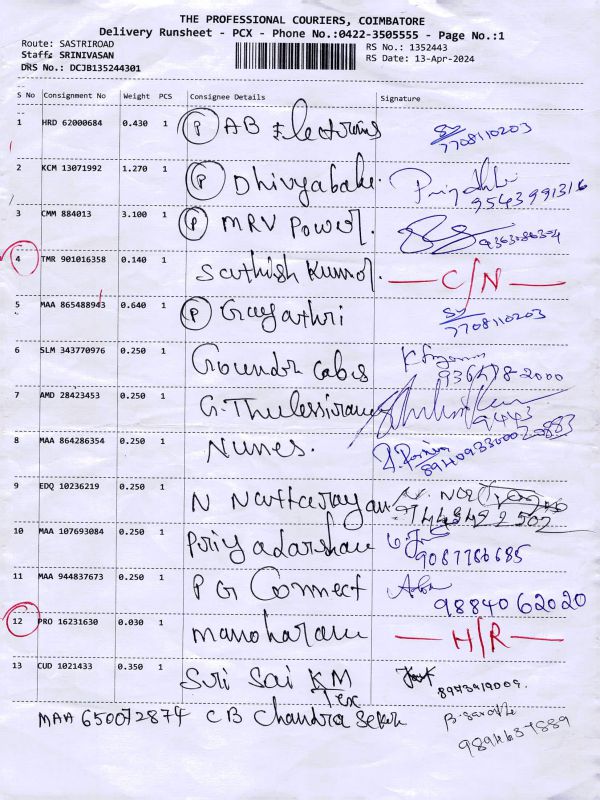 THE PROFESSIONAL COURIERS, COIMBATORE
Delivery Runsheet - PCX - Phone No.:0422-3505555 - Page No.:1
Route: SASTRIROAD
Staff: SRINIVASAN
DRS No.: DCJB135244301
RS No.: 1352443
RS Date: 13-Apr-2024
S No Consignment No Weight PCS Consignee Details Signature
1 HRD 62000684 0.430 1 (P) AB Electricins
7708110203
2 KCM 13071992 1.270 1 (P) Dhivyabala.
9543991316
3 CMM 884013 3.100 1 (P) MRV Power.
4 TMR 901016358 0.140 1 Sathish Kumar. C/N
5 MAA 865488943 0.640 1 (P) Gayathri
7708110203
6 SLM 343770976 0.250 1
7 AMD 28423453 0.250 1 G. Thulessiraman
9443
20883
8 MAA 864286354 0.250 1 Nunes.
9 EDQ 10236219 0.250 1 N Nattarayan
10 MAA 107693084 0.250 1 Priyadarshan
9087786685
11 MAA 944837673 0.250 1 PG Connect
9884062020
12 PRO 16231630 0.030 1 manoharan H/R
13 CUD 1021433 0.350 1 Sri Sai KM
Tex
8973419009.
MAA 650072874 CB Chandra Seker